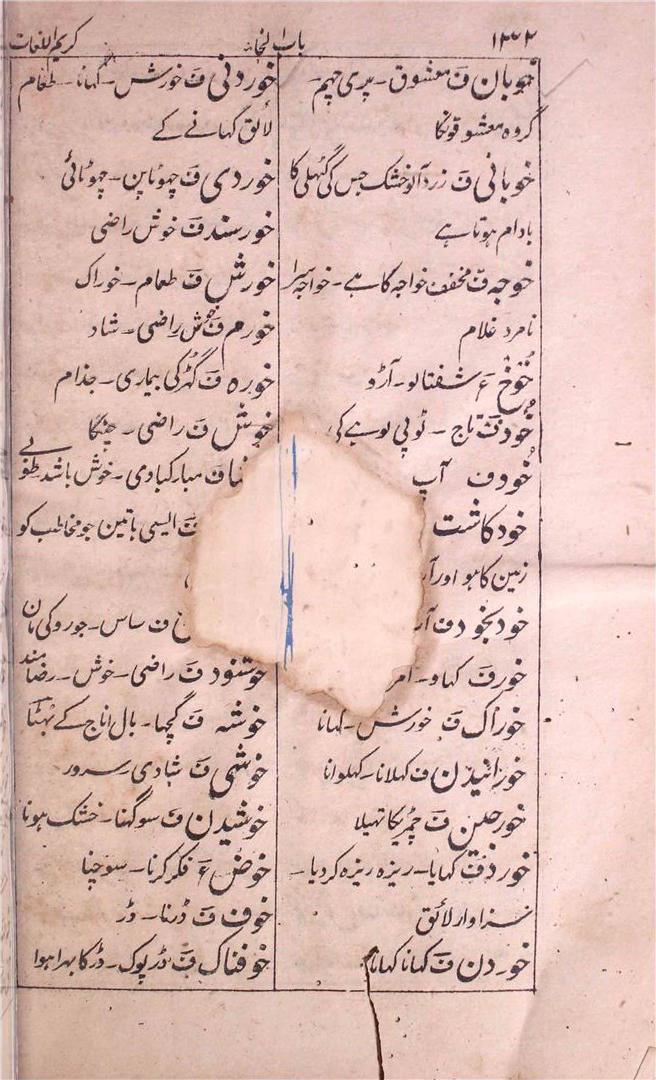 ۱۳۲
باب الخاء
کریم اللغات
خوبان ف معشوق ۔ پری چہم ۔
گروہ معشوقونکا
خوبانی ف زردآلو خشک جس کی گٹھلی کا
بادام ہوتا ہے
خوجہ ف مخفف خواجہ کا ہے ۔ خواجہ سرا
نامرد غلام
خوخ ع شفتالو ۔ آڑو
خود ف تاج ۔ ٹوپی لوہے کی
خود ف آپ
خود کاشت
زمین کا ہو اور
خود بخود ف
خور ف کہاو ۔ امر
خوراک ف خورش ۔ کہانا
خورانیدن ف کہلانا ۔ کہلوانا
خورجین ف چمڑیکا تہیلا
خورد ف کہایا ۔ ریزہ ریزہ کردیا ۔
سزاوار لائق
خوردن ف کہانا کہانا
خوردنی ف خورش ۔ کہانا ۔ طعام
لائق کہانے کے
خوردی ف چہوٹاپن ۔ چہوٹائی
خورسند ف خوش راضی
خورش ف طعام ۔ خوراک
خورم ف خوش راضی ۔ شاد
خورہ ف گہُرکی بیماری ۔ جذام
خوش ف راضی ۔ چنگا
ف مبارکبادی ۔ خوش باشد
ف ایسی باتین جو مخاطب کو
ف ساس ۔ جورو کی مان
خوشنود ف راضی ۔ خوش ۔ رضامند
خوشہ ف گچہا ۔ بال اناج کے بُہٹا
خوشی ف شادی سرور
خوشیدن ف سوکہنا ۔ خشک ہونا
خوض ع فکر کرنا ۔ سوچنا
خوف ف ڈرنا ۔ ڈر
خوفناک ف ڈرپوک ۔ ڈر کا بہرا ہوا